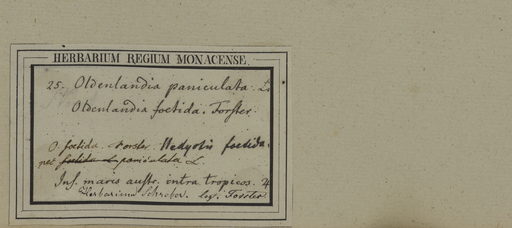 HERBARIUM REGIUM MONACENSE.
25. Oldenlandia paniculata. L.
Oldenlandia foetida. Forster.
O. foetida. Forster. Hedyotis foetida.
nec foetida L paniculata L.
Ins. maris austr. intra tropicos. ♃
Herbarium Schreber. leg. Forster.